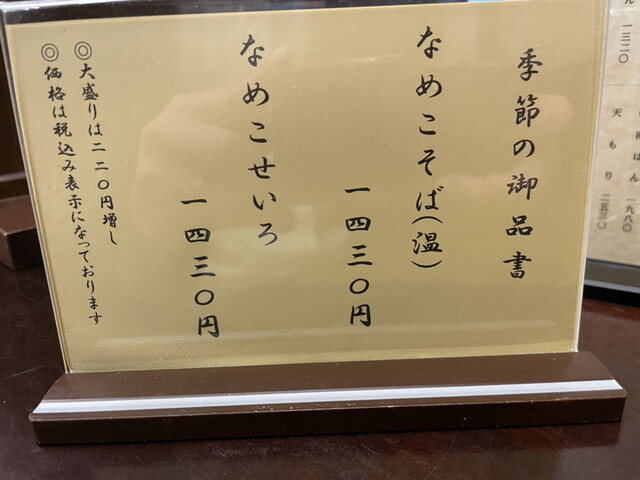 季節の御品書
なめこそば(温)
一四三〇円
なめこせいろ
一四三〇円
◎大盛りは二二〇円増し
◎価格は税込み表示になっております
一三二〇
一九八〇
天もり 二五三〇